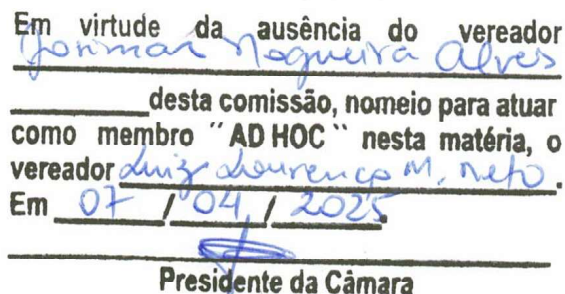 Em virtude da ausência do vereador
Josimar Nogueira Alves
desta comissão, nomeio para atuar
como membro ´´AD HOC`` nesta matéria, o
vereador Luiz Lourenço M. Neto.
Em 07 / 04 / 2025
Presidente da Câmara